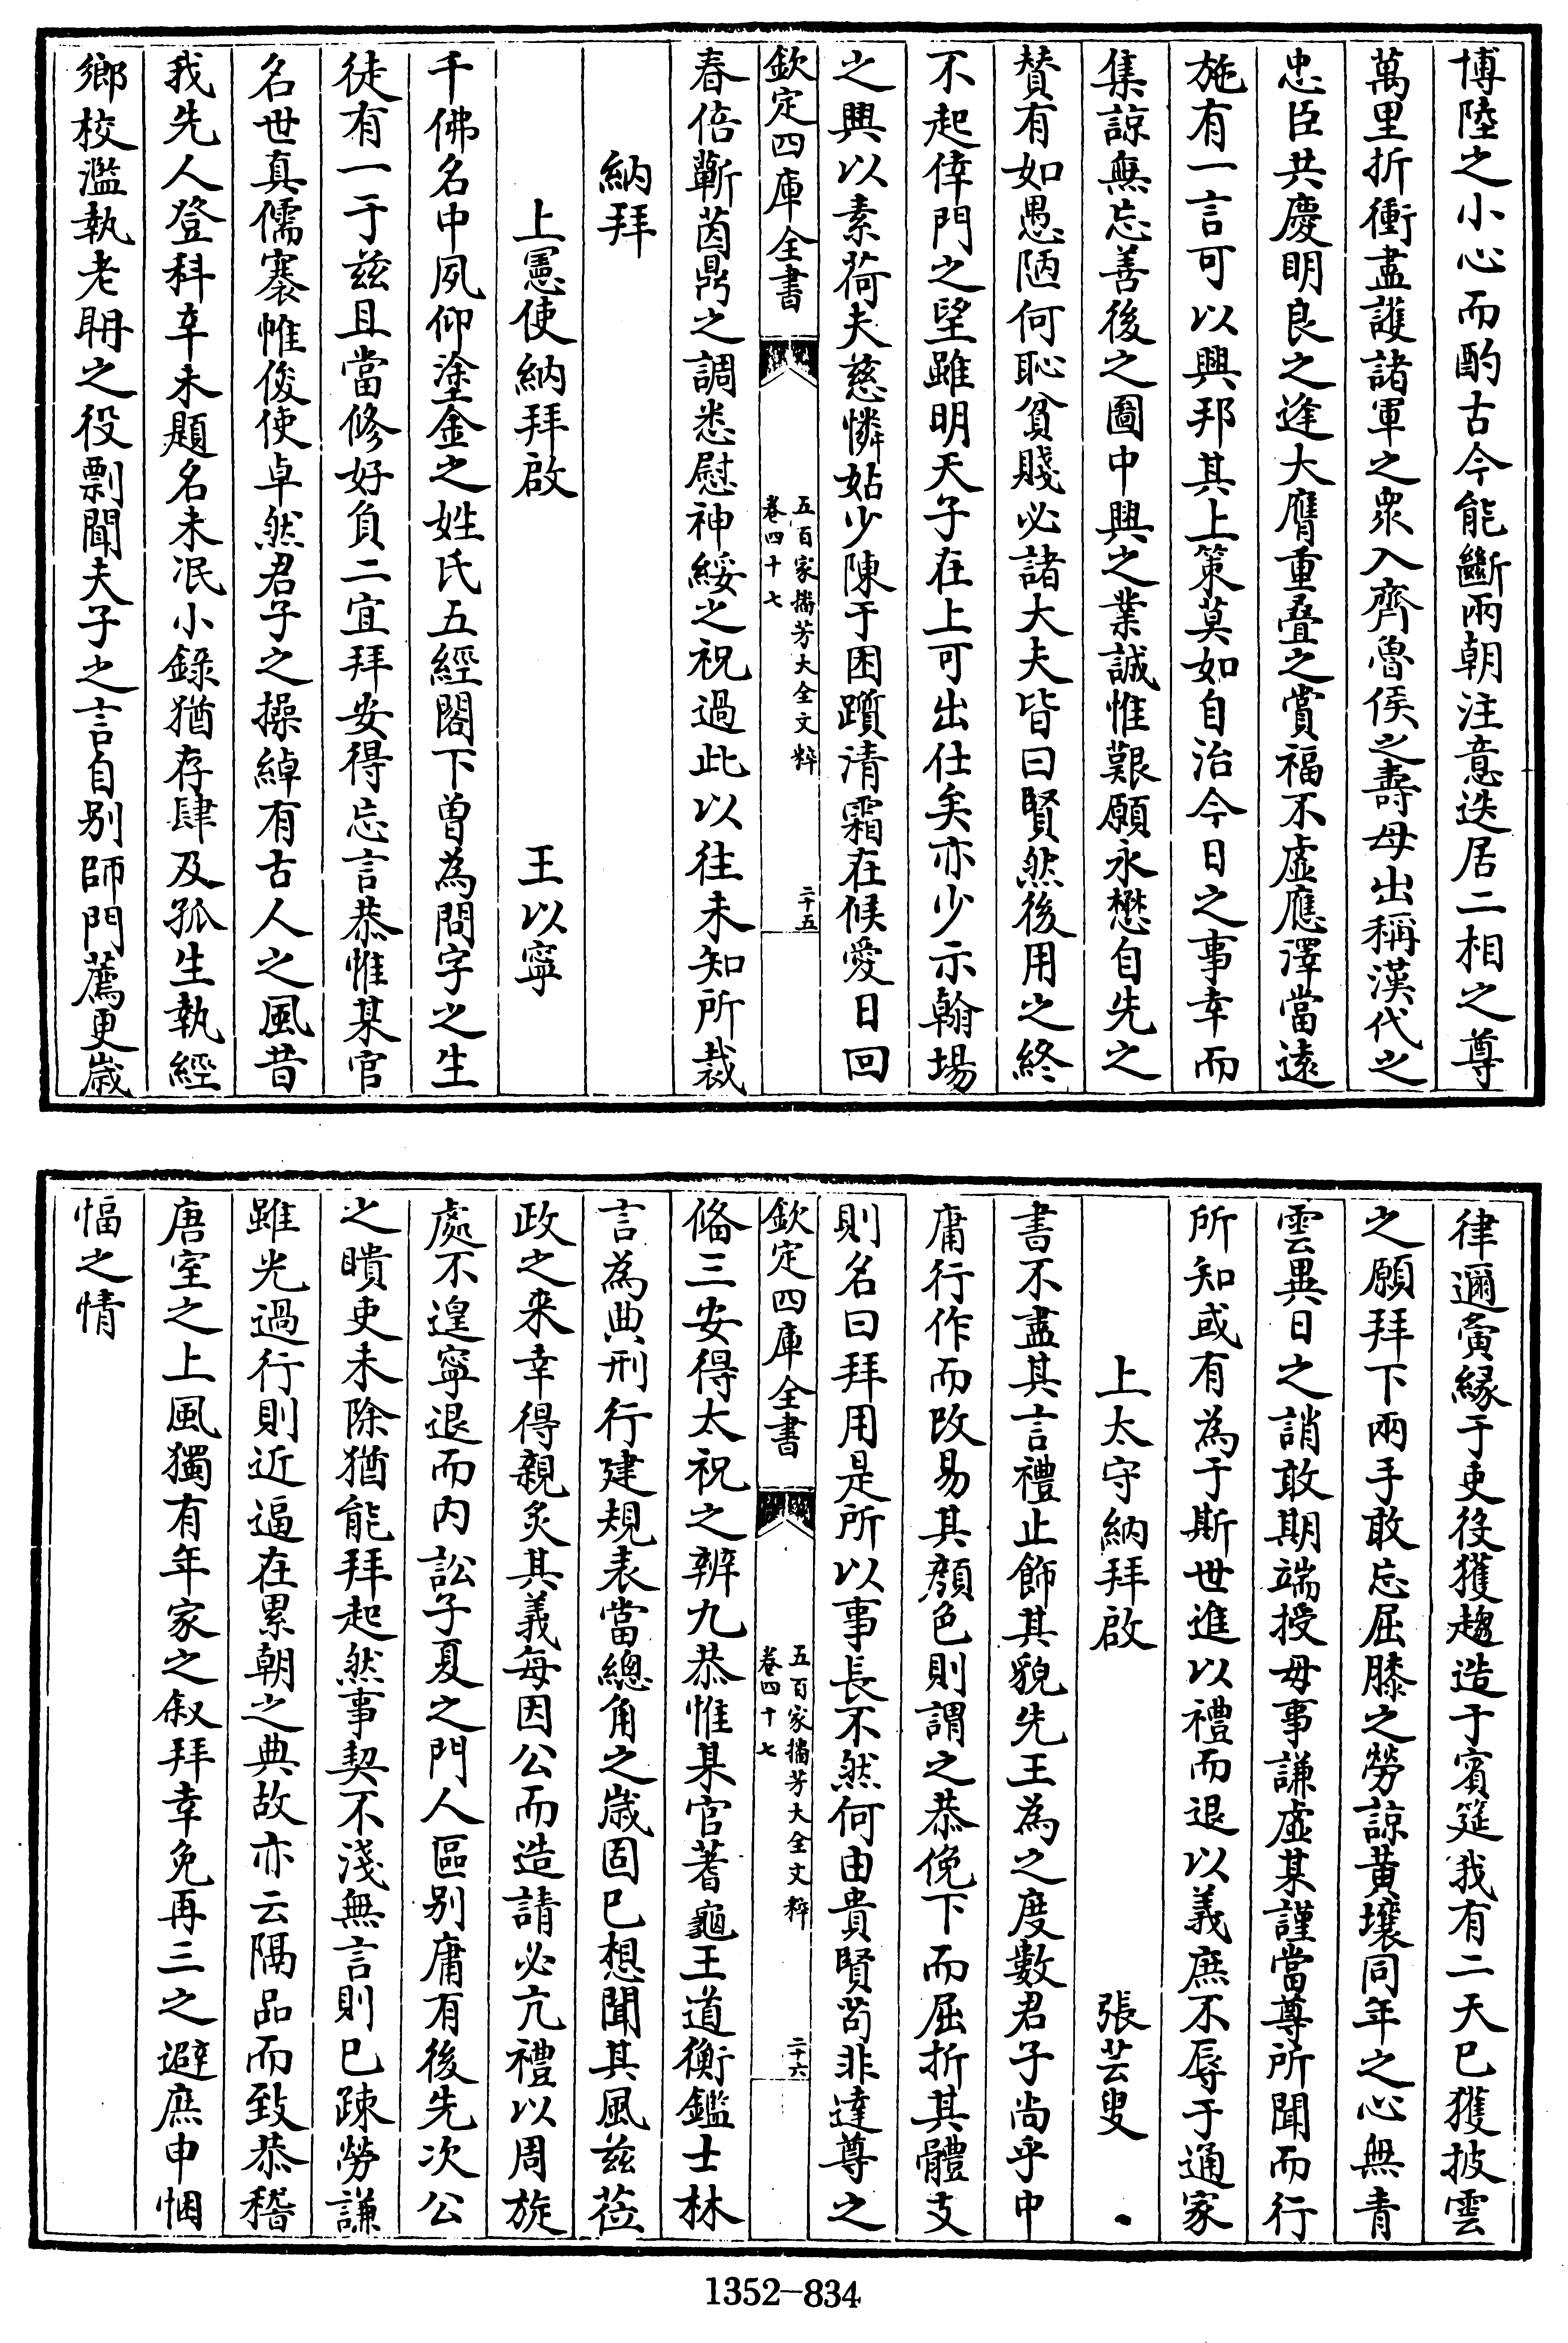 博陸之小心而酌古今能斷兩朝注意迭居二相之尊
萬里折衝盡護諸軍之衆入齊魯侯之壽母出稱漢代之
忠臣共慶明良之逢大膺重疊之賞福不虛應澤當遠
施有一言可以興邦其上策莫如自治今日之事幸而
集諒無忘善後之圖中興之業誠惟艱願永懋自先之
賛有如愚陋何恥貧賤必諸大夫皆曰賢然後用之終
不起倖門之望雖明天子在上可出仕矣亦少示翰場
之興以素荷夫慈憐姑少陳于困躓清霜在候愛日回
欽定四庫全書
五百家播芳大全文粹
卷四十七
二十五
春倍蘄茵鼎之調悉慰神綏之祝過此以往未知所裁
納拜
上憲使納拜啟 王以寧
千佛名中夙仰塗金之姓氏五經閣下曾為問字之生
徒有一于兹且當修好負二宜拜安得忘言恭惟某官
名世真儒褰帷俊使卓然君子之操綽有古人之風昔
我先人登科辛未題名未泯小錄猶存肆及孤生執經
鄉校濫執老聃之役剽聞夫子之言自别師門薦更歲
律邇夤緣于吏役獲趨造于賓筵我有二天已獲披雲
之願拜下兩手敢忘屈膝之勞諒黄壤同年之心無青
雲異日之誚敢期端授毋事謙虛某謹當尊所聞而行
所知或有為于斯世進以禮而退以義庶不辱于通家
上太守納拜啟 張芸叟
書不盡其言禮止飾其貌先王為之度數君子尚乎中
庸行作而改易其顔色則謂之恭俛下而屈折其體支
則名曰拜用是所以事長不然何由貴賢茍非達尊之
欽定四庫全書
五百家播芳大全文粹
卷四十七
二十六
備三安得太祝之辨九恭惟某官蓍龜王道衡鑑士林
言為典刑行建規表當總角之歲固已想聞其風兹莅
政之来幸得親炙其義每因公而造請必亢禮以周旋
處不遑寧退而内訟子夏之門人區别庸有後先次公
之瞶吏未除猶能拜起然事契不淺無言則已踈勞謙
雖光過行則近逼在累朝之典故亦云隔品而致恭稽
唐室之上風獨有年家之叙拜幸免再三之避庶申悃
愊之情
1352-834